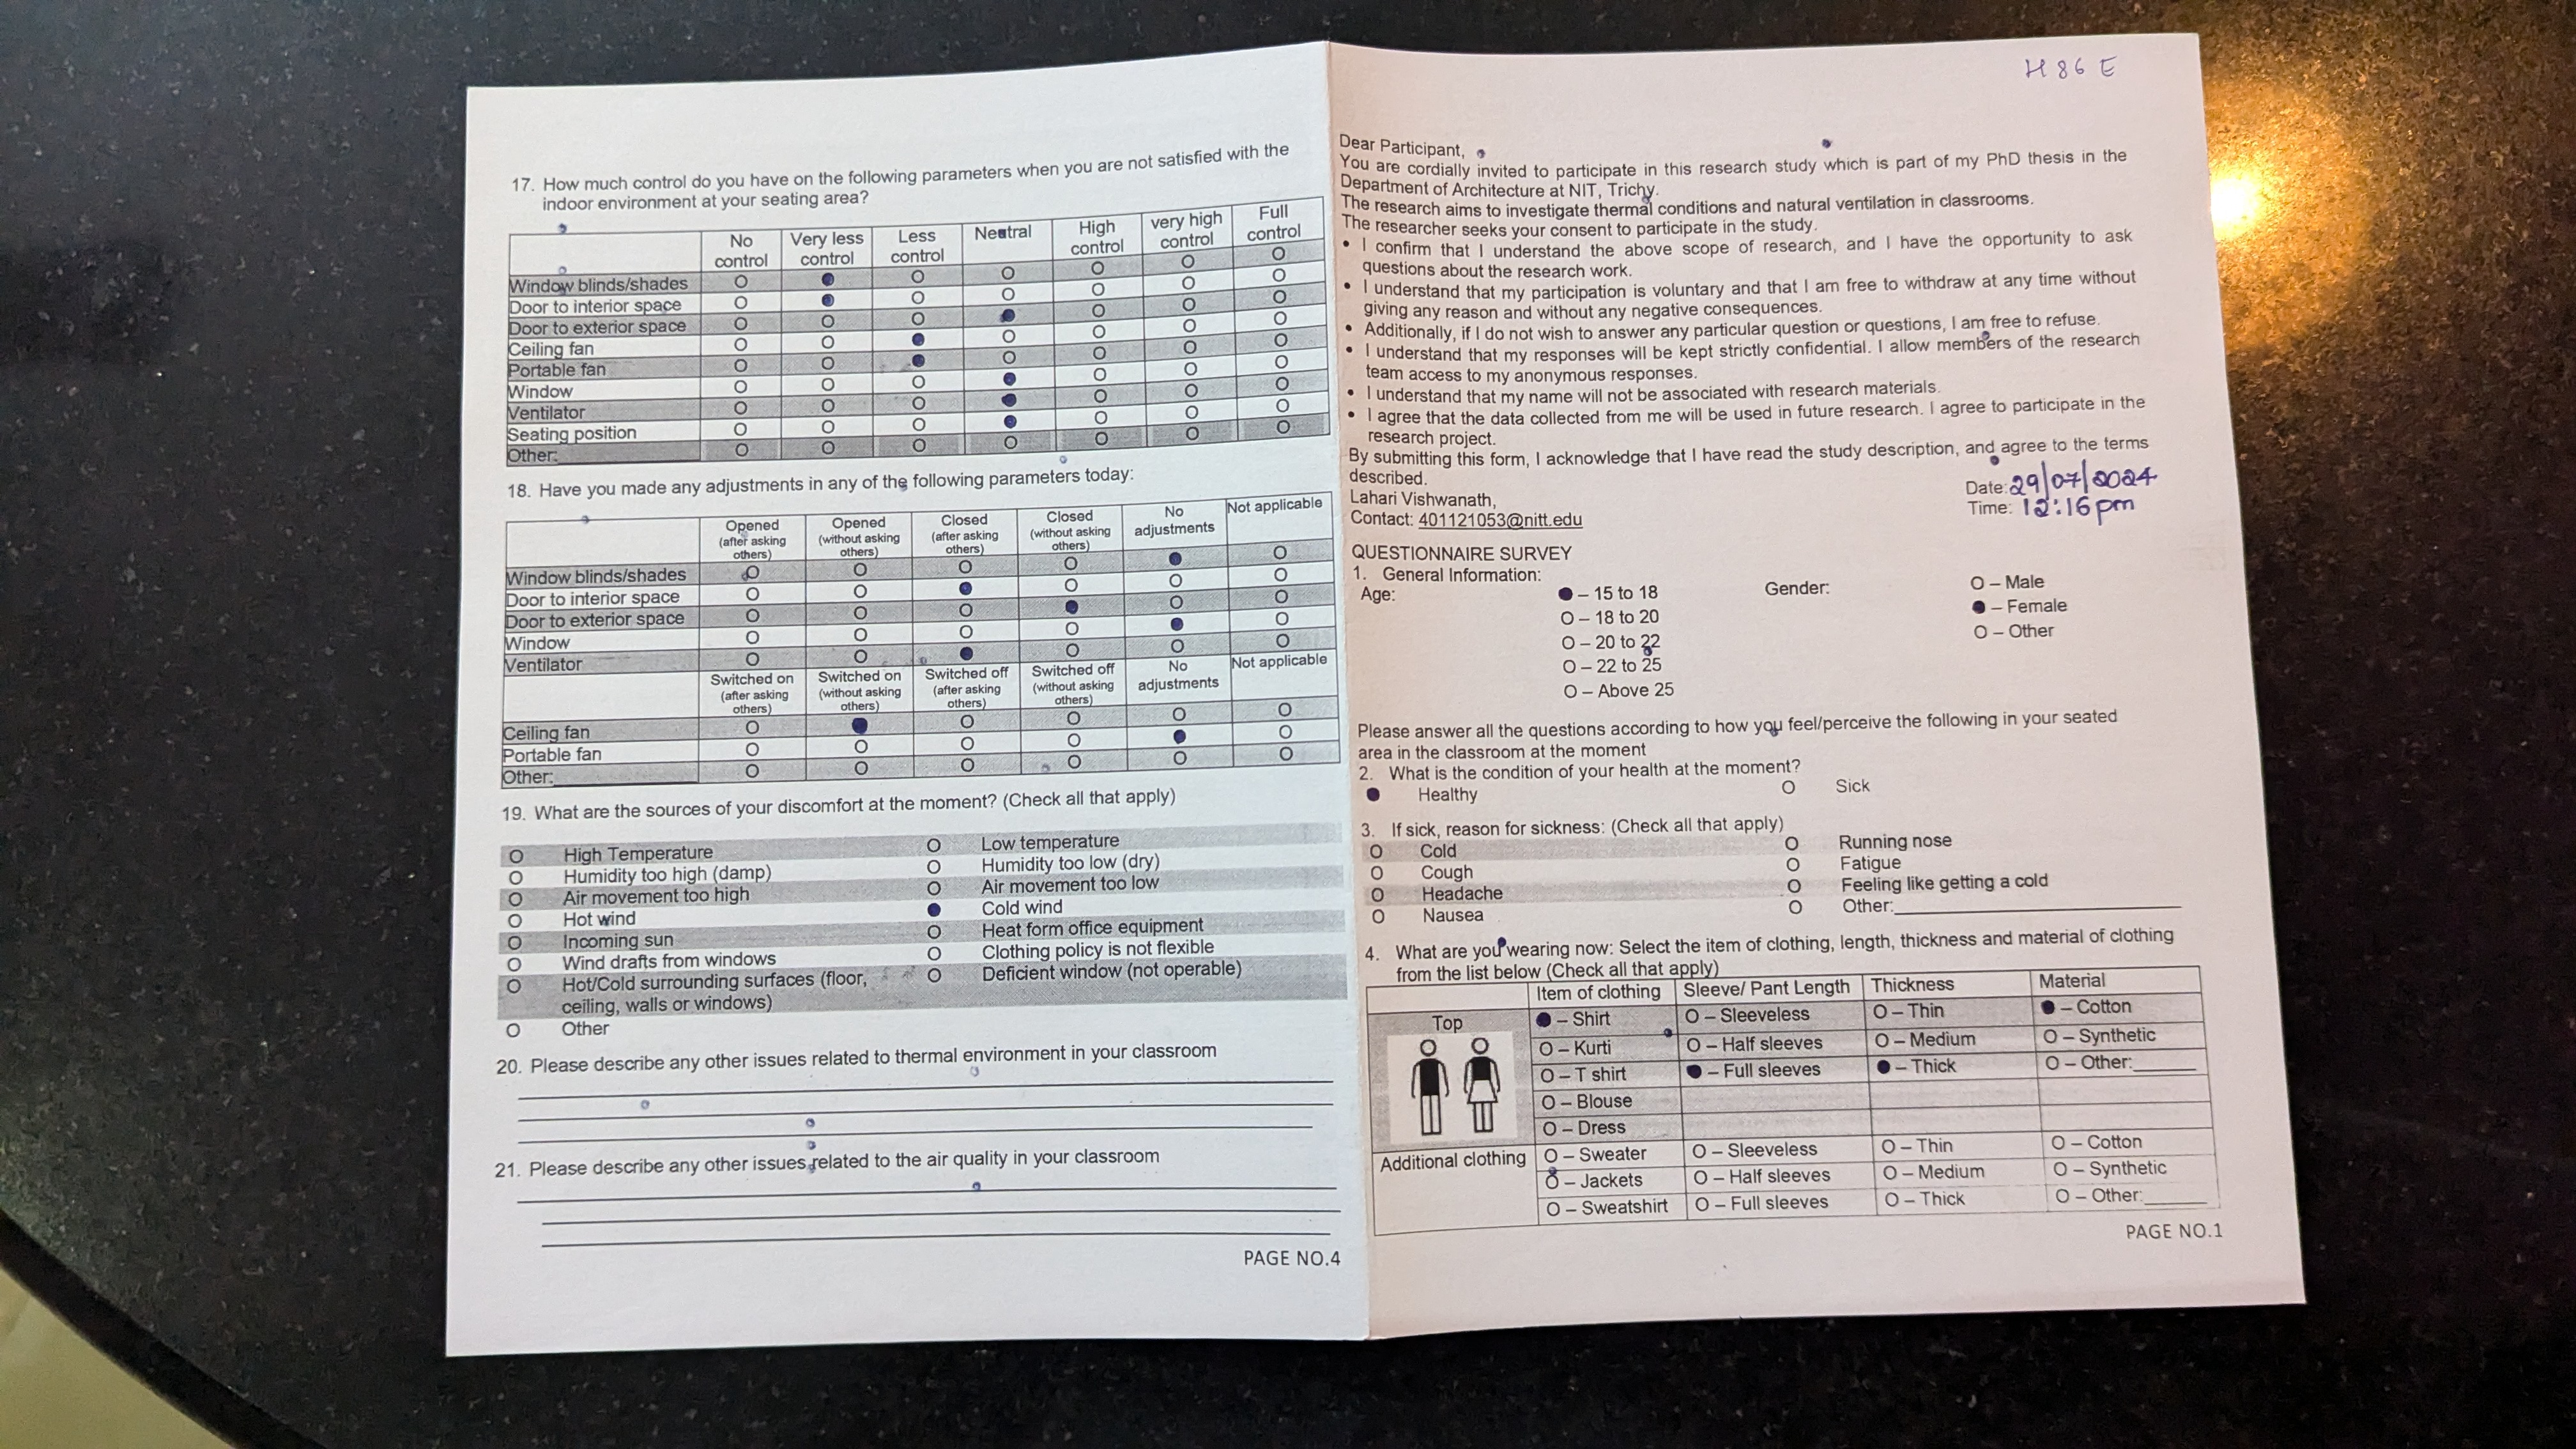 17. How much control do you have on the following parameters when you are not satisfied with the
indoor environment at your seating area?
No control Very less control Less control Neutral High control very high control Full control
Window blinds/shades O ● O O O O O
Door to interior space O ● O O O O O
Door to exterior space O O O ● O O O
Ceiling fan O O ● O O O O
Portable fan O O ● O O O O
Window O O O ● O O O
Ventilator O O O ● O O O
Seating position O O O ● O O O
Other: O O O O O O O
18. Have you made any adjustments in any of the following parameters today:
Opened (after asking others) Opened (without asking others) Closed (after asking others) Closed (without asking others) No adjustments Not applicable
Window blinds/shades O O O O ● O
Door to interior space O O ● O O O
Door to exterior space O O O ● O O
Window O O O O ● O
Ventilator O O ● O O O
Switched on (after asking others) Switched on (without asking others) Switched off (after asking others) Switched off (without asking others) No adjustments Not applicable
Ceiling fan O ● O O O O
Portable fan O O O O ● O
Other: O O O O O O
19. What are the sources of your discomfort at the moment? (Check all that apply)
O High Temperature O Low temperature
O Humidity too high (damp) O Humidity too low (dry)
O Air movement too high O Air movement too low
O Hot wind ● Cold wind
O Incoming sun O Heat form office equipment
O Wind drafts from windows O Clothing policy is not flexible
O Hot/Cold surrounding surfaces (floor, O Deficient window (not operable)
ceiling, walls or windows)
O Other
20. Please describe any other issues related to thermal environment in your classroom
21. Please describe any other issues related to the air quality in your classroom
PAGE NO.4
H 86 E
Dear Participant,
You are cordially invited to participate in this research study which is part of my PhD thesis in the
Department of Architecture at NIT, Trichy.
The research aims to investigate thermal conditions and natural ventilation in classrooms.
The researcher seeks your consent to participate in the study.
• I confirm that I understand the above scope of research, and I have the opportunity to ask
questions about the research work.
• I understand that my participation is voluntary and that I am free to withdraw at any time without
giving any reason and without any negative consequences.
• Additionally, if I do not wish to answer any particular question or questions, I am free to refuse.
• I understand that my responses will be kept strictly confidential. I allow members of the research
team access to my anonymous responses.
• I understand that my name will not be associated with research materials.
• I agree that the data collected from me will be used in future research. I agree to participate in the
research project.
By submitting this form, I acknowledge that I have read the study description, and agree to the terms
described.
Lahari Vishwanath,
Contact: 401121053@nitt.edu
Date: 29/07/2024
Time: 12:16 pm
QUESTIONNAIRE SURVEY
1. General Information:
Age: ● – 15 to 18 Gender: O – Male
O – 18 to 20 ● – Female
O – 20 to 22 O – Other
O – 22 to 25
O – Above 25
Please answer all the questions according to how you feel/perceive the following in your seated
area in the classroom at the moment
2. What is the condition of your health at the moment?
● Healthy O Sick
3. If sick, reason for sickness: (Check all that apply)
O Cold O Running nose
O Cough O Fatigue
O Headache O Feeling like getting a cold
O Nausea O Other:
4. What are you wearing now: Select the item of clothing, length, thickness and material of clothing
from the list below (Check all that apply)
Item of clothing Sleeve/ Pant Length Thickness Material
Top ● – Shirt O – Sleeveless O – Thin ● – Cotton
O – Kurti O – Half sleeves O – Medium O – Synthetic
O – T shirt ● – Full sleeves ● – Thick O – Other:
O – Blouse
O – Dress
Additional clothing O – Sweater O – Sleeveless O – Thin O – Cotton
O – Jackets O – Half sleeves O – Medium O – Synthetic
O – Sweatshirt O – Full sleeves O – Thick O – Other:
PAGE NO.1